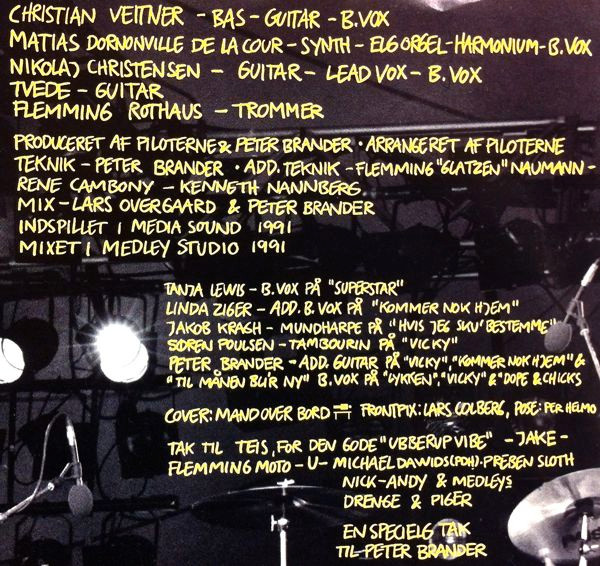 CHRISTIAN VEITNER - BAS - GUITAR - B.VOX
MATIAS DORNONVILLE DE LA COUR - SYNTH - ELGORGEL - HARMONIUM - B.VOX
NIKOLAJ CHRISTENSEN - GUITAR - LEAD VOX - B.VOX
TVEDE - GUITAR
FLEMMING ROTHAUS - TROMMER
PRODUCERET AF PILOTERNE & PETER BRANDER · ARRANGERET AF PILOTERNE
TEKNIK - PETER BRANDER · ADD. TEKNIK - FLEMMING "GLATZEN" NAUMANN -
RENE CAMBONY - KENNETH NANNBERG.
MIX - LARS OVERGAARD & PETER BRANDER
INDSPILLET I MEDIA SOUND 1991
MIXET I MEDLEY STUDIO 1991
TANJA LEWIS - B.VOX PÅ "SUPERSTAR"
LINDA ZIGER - ADD. B.VOX PÅ "KOMMER NOK HJEM"
JAKOB KRAGH - MUNDHARPE PÅ "HVIS JEG SKU' BESTEMME"
SØREN POULSEN - TAMBOURIN PÅ "VICKY"
PETER BRANDER - ADD. GUITAR PÅ "VICKY", "KOMMER NOK HJEM" &
"TIL MÅNEN BLIR NY" B.VOX PÅ "LYKKEN", "VICKY" & "DOPE & CHICKS
COVER: MAND OVER BORD FRONTPIX: LARS COLBERG, POSE: PER HELMO
TAK TIL TEIS, FOR DEN GODE "UBBERUP VIBE" - JAKE -
FLEMMING MOTO - U - MICHAEL DAWIDS (PDH). PREBEN SLOTH
NICK - ANDY & MEDLEYS
DRENGE & PIGER
EN SPECIELG TAK
TIL PETER BRANDER